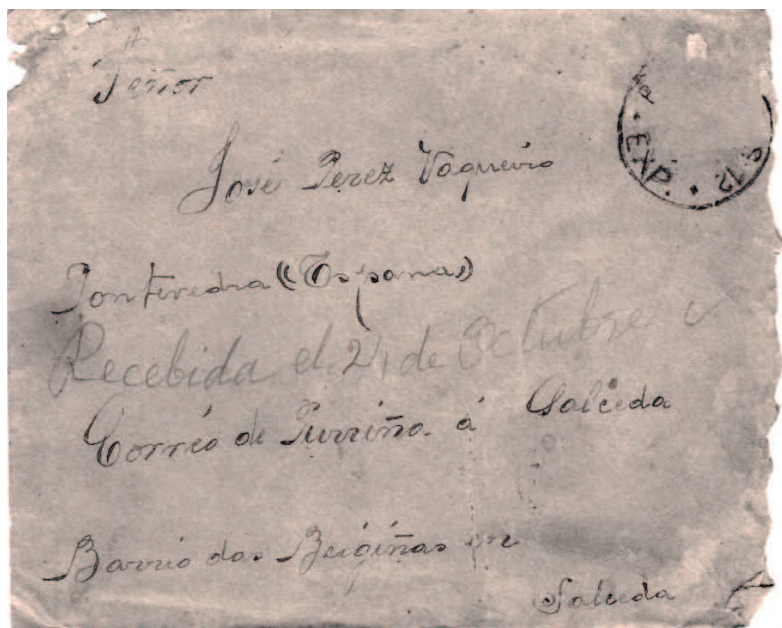 A
Señor
José Perez Vaqueiro
Pontevedra (España)
Recebida el 24 de Octubre
Correo de Purriño á Salceda
Barrio das Beigiñas en
Salceda
EXP. * S. 12